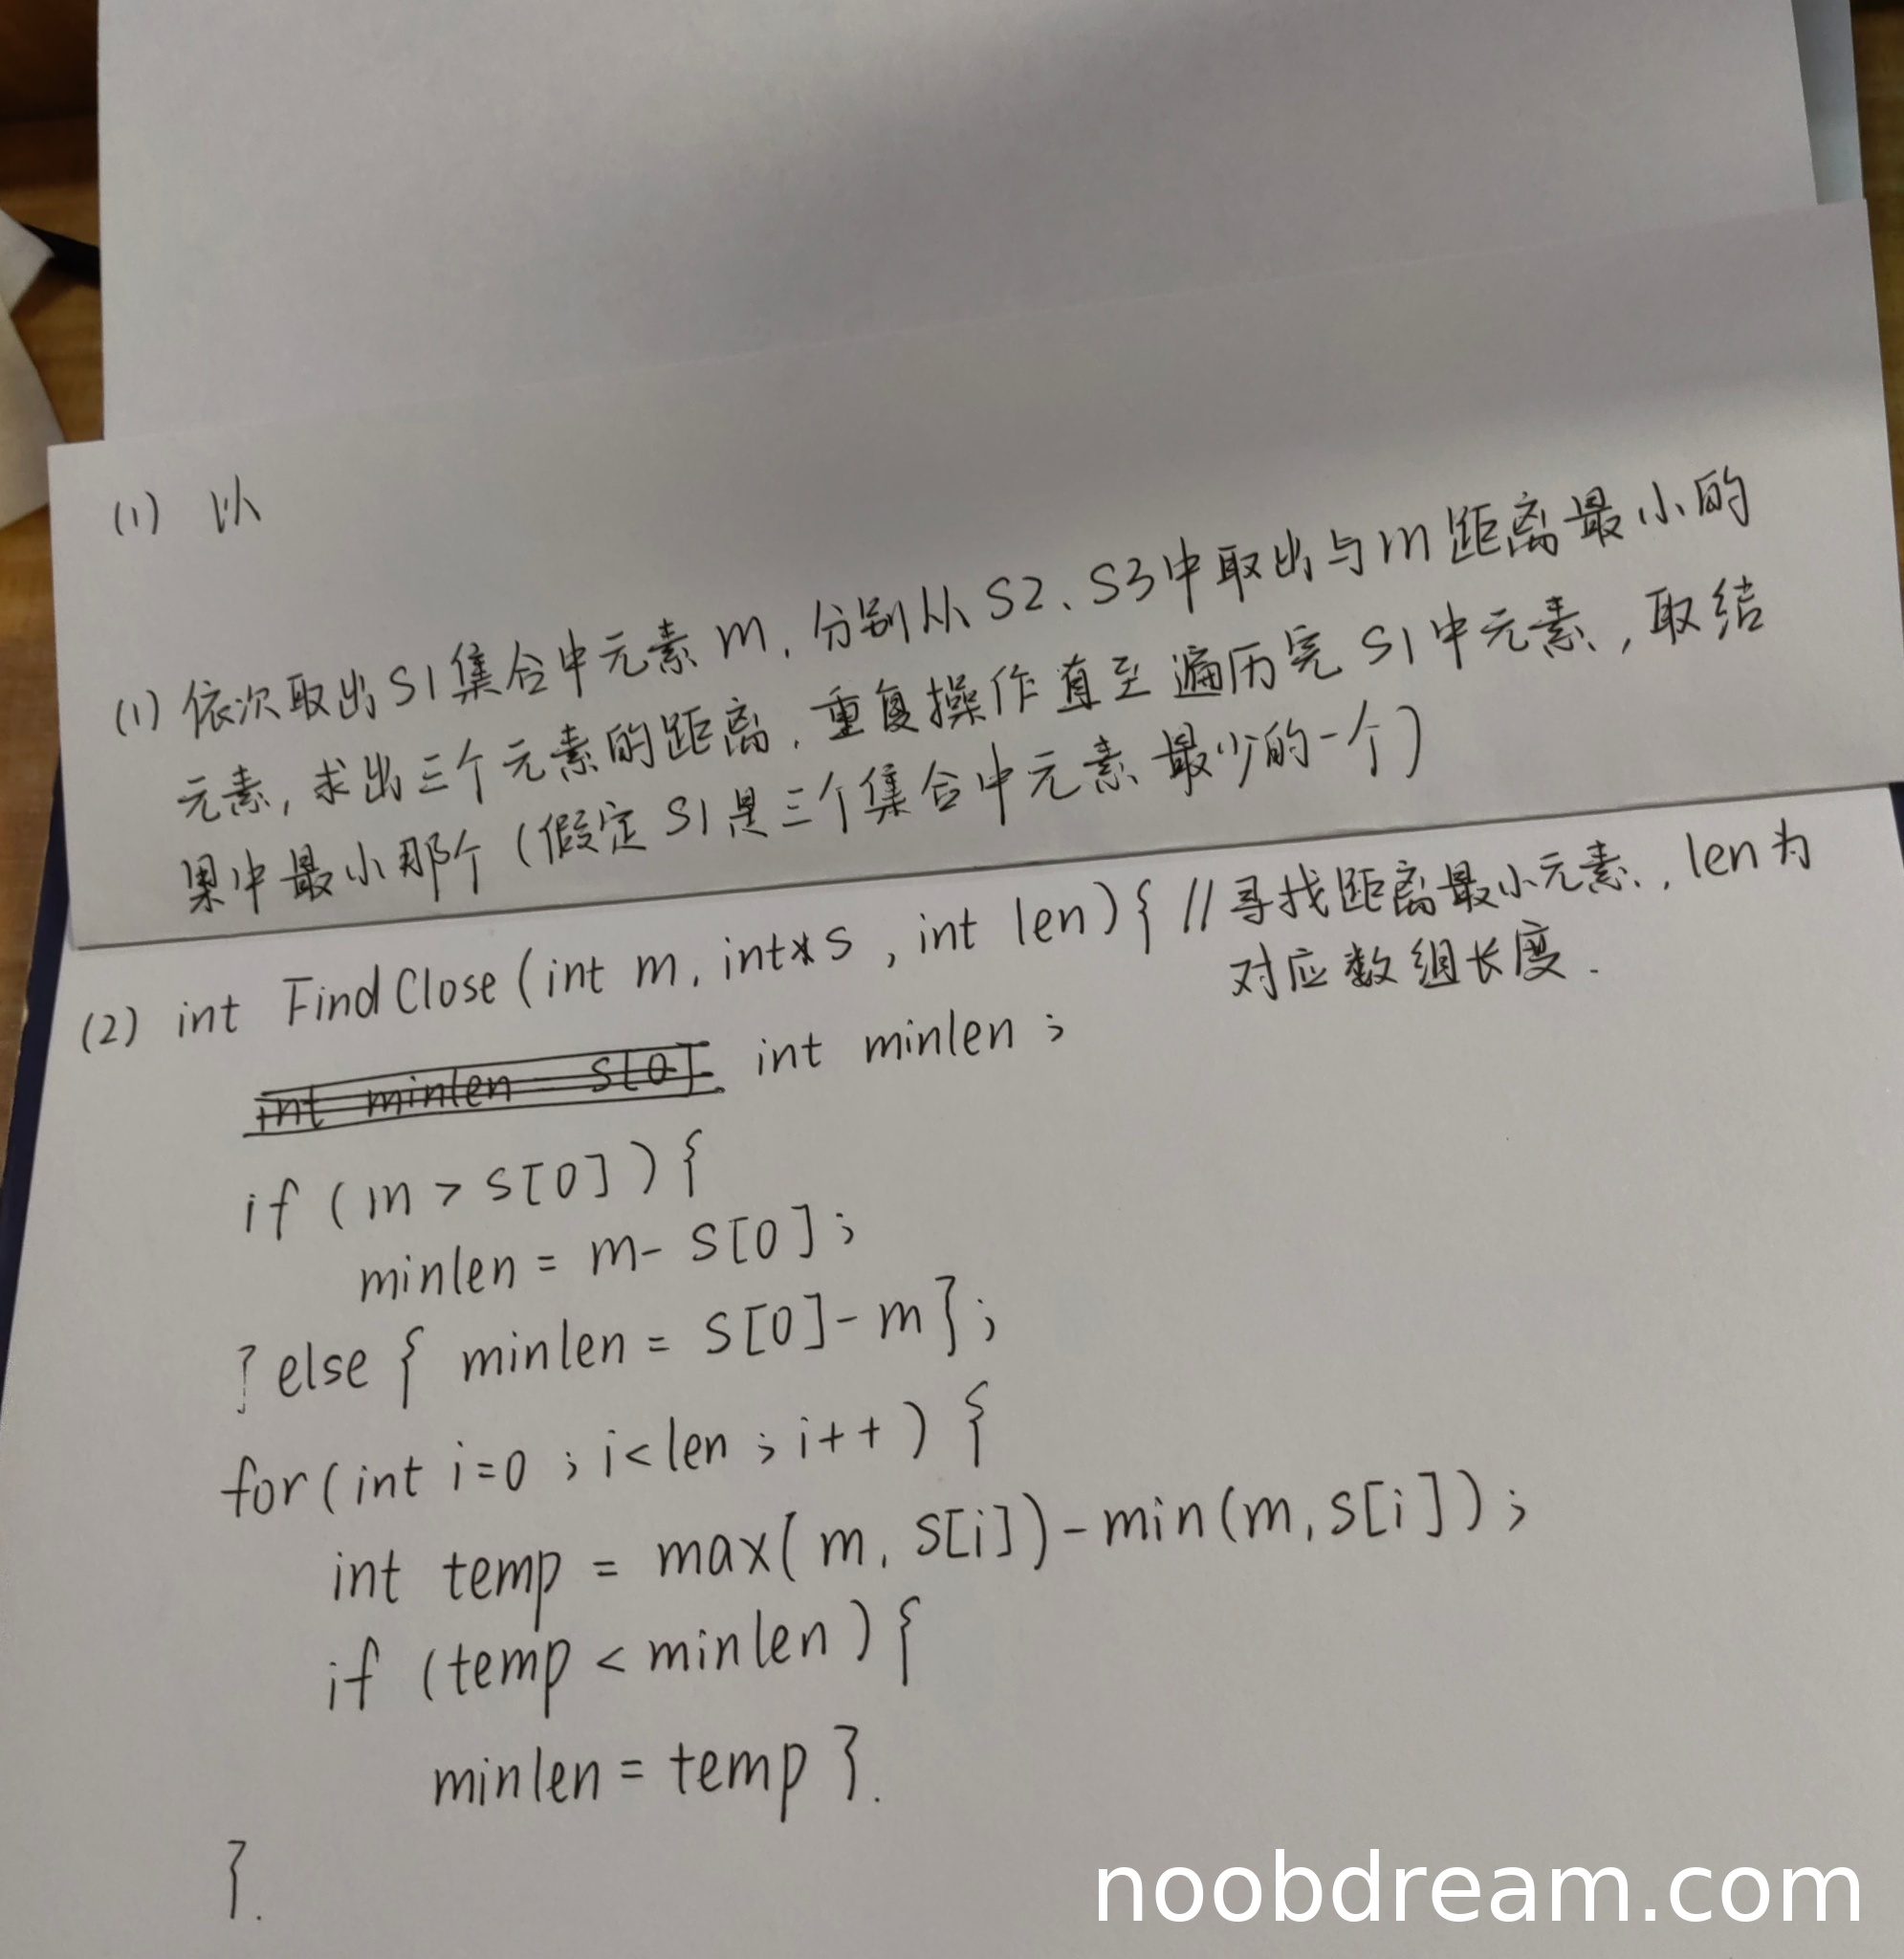 (1) 以
(1) 依次取出S1集合中元素m，分别从S2、S3中取出与m距离最小的
元素，求出三个元素的距离，重复操作直至遍历完S1中元素，取结
果中最小那个（假定S1是三个集合中元素最少的一个）
(2) int FindClose(int m, int*s, int len){ //寻找距离最小元素，len为
对应数组长度.
int minlen = s[0] int minlen ;
if (m > s[0]) {
minlen = m- s[0] ;
} else { minlen = s[0]-m};
for(int i=0 ; i<len ; i++) {
int temp = max(m, s[i])-min(m, s[i]) ;
if (temp < minlen) {
minlen = temp }.
}.
noobdream.com